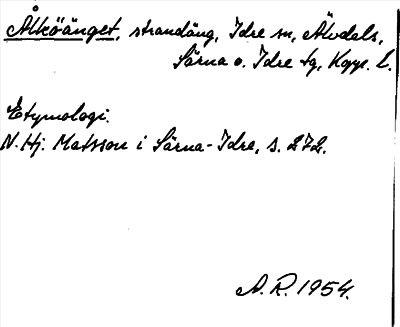 Ålköänget, strandäng, Idre sn, Älvdals,
Särna o. Idre tg, Kopp. l.
Etymologi.
N. Hj. Matsson i Särna-Idre, s. 272.
A. R. 1954.